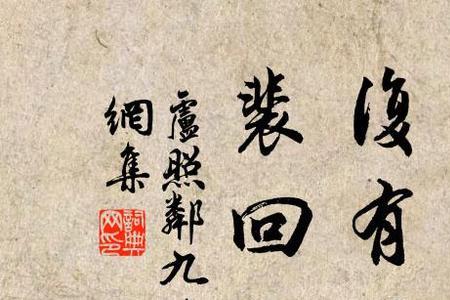 復有
裴回
盧照鄰九
網集
詞典
网印